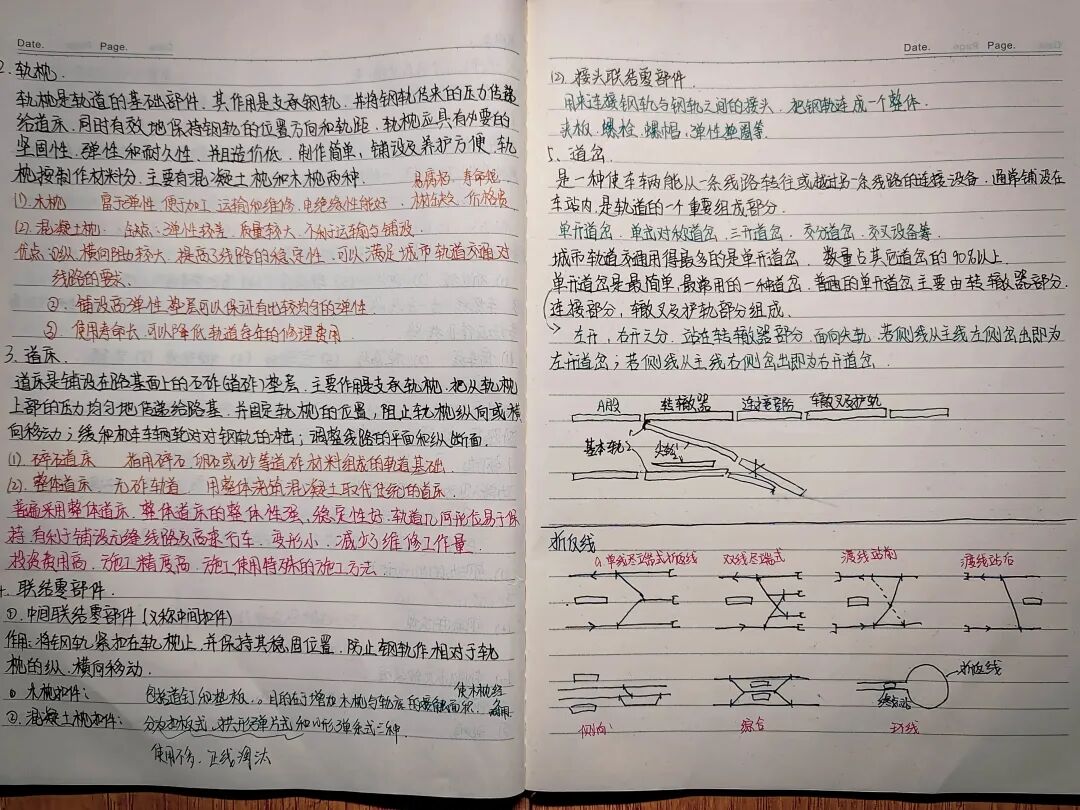 Date. Page.
2. 轨枕.
轨枕是轨道的基础部件. 其作用是支承钢轨, 并将钢轨传来的压力传递
给道床, 同时有效地保持钢轨的位置方向和轨距. 轨枕应具有必要的
坚固性, 弹性和耐久性, 并且造价低, 制作简单, 铺设及养护方便. 轨
枕按制作材料分, 主要有混凝土枕和木枕两种. 易腐朽 寿命短
(1). 木枕 富于弹性, 便于加工 运输和维修, 电绝缘性能好. 价格贵
(2). 混凝土枕. 缺点: 弹性较差, 质量较大, 不利于运输与铺设
优点: ①纵横向阻力较大, 提高了线路的稳定性, 可以满足城市轨道交通对
线路的要求.
②. 铺设高弹性垫层可以保证有比较均匀的弹性
③. 使用寿命长, 可以降低轨道每年的修理费用
3. 道床.
道床是铺设在路基面上的石砟(道砟)垫层. 主要作用是支承轨枕, 把从轨枕
上部的压力均匀地传递给路基, 并固定轨枕的位置, 阻止轨枕纵向或横
向移动; 缓和机车车辆轮对对钢轨的冲击; 调整线路的平面和纵断面.
(1). 碎石道床 指用碎石, 卵石或砂等道砟材料组成的轨道基础.
(2). 整体道床. 无砟轨道. 用整体浇筑混凝土取代传统的道床.
普遍采用整体道床. 整体道床的整体性强, 稳定性好, 轨道几何形位易于保
持, 有利于铺设无缝线路及高速行车. 变形小, 减少了维修工作量.
投资费用高, 施工精度高, 施工使用特殊的施工方法.
4. 联结零部件.
①. 中间联结零部件 (又称中间扣件)
作用: 将钢轨紧扣在轨枕上, 并保持其稳固位置, 防止钢轨作相对于轨
枕的纵. 横向移动.
① 木枕扣件: 包括道钉和垫板. 目的在于增加木枕与轨底的接触面积. 使木枕经
②. 混凝土枕扣件: 分为扣板式, 拱形弹片式和ω形弹条式三种.
使用不多. 正线淘汰
Date. Page.
(2) 接头联结零部件
用来连接钢轨与钢轨之间的接头, 把钢轨连成一个整体.
夹板. 螺栓. 螺帽, 弹性垫圈等.
5. 道岔.
是一种使车辆能从一条线路转往或越过另一条线路的连接设备. 通常铺设在
车站内, 是轨道的一个重要组成部分.
单开道岔, 单式对称道岔, 三开道岔, 交分道岔, 交叉设备等.
城市轨道交通用得最多的是单开道岔. 数量占其图道岔的90%以上.
单开道岔是最简单, 最常用的一种道岔. 普通的单开道岔主要由转辙器部分.
连接部分, 辙叉及护轨部分组成.
左开, 右开之分. 站在转辙器部分, 面向尖轨, 若侧线从主线左侧岔出即为
左开道岔; 若侧线从主线右侧岔出即为右开道岔.
A股 转辙器 连接部分 辙叉及护轨
基本轨 尖轨
折返线
a 单线尽端式折返线 双线尽端式 渡线站前 渡线站后
折返线
终点站
侧向 综合 环线